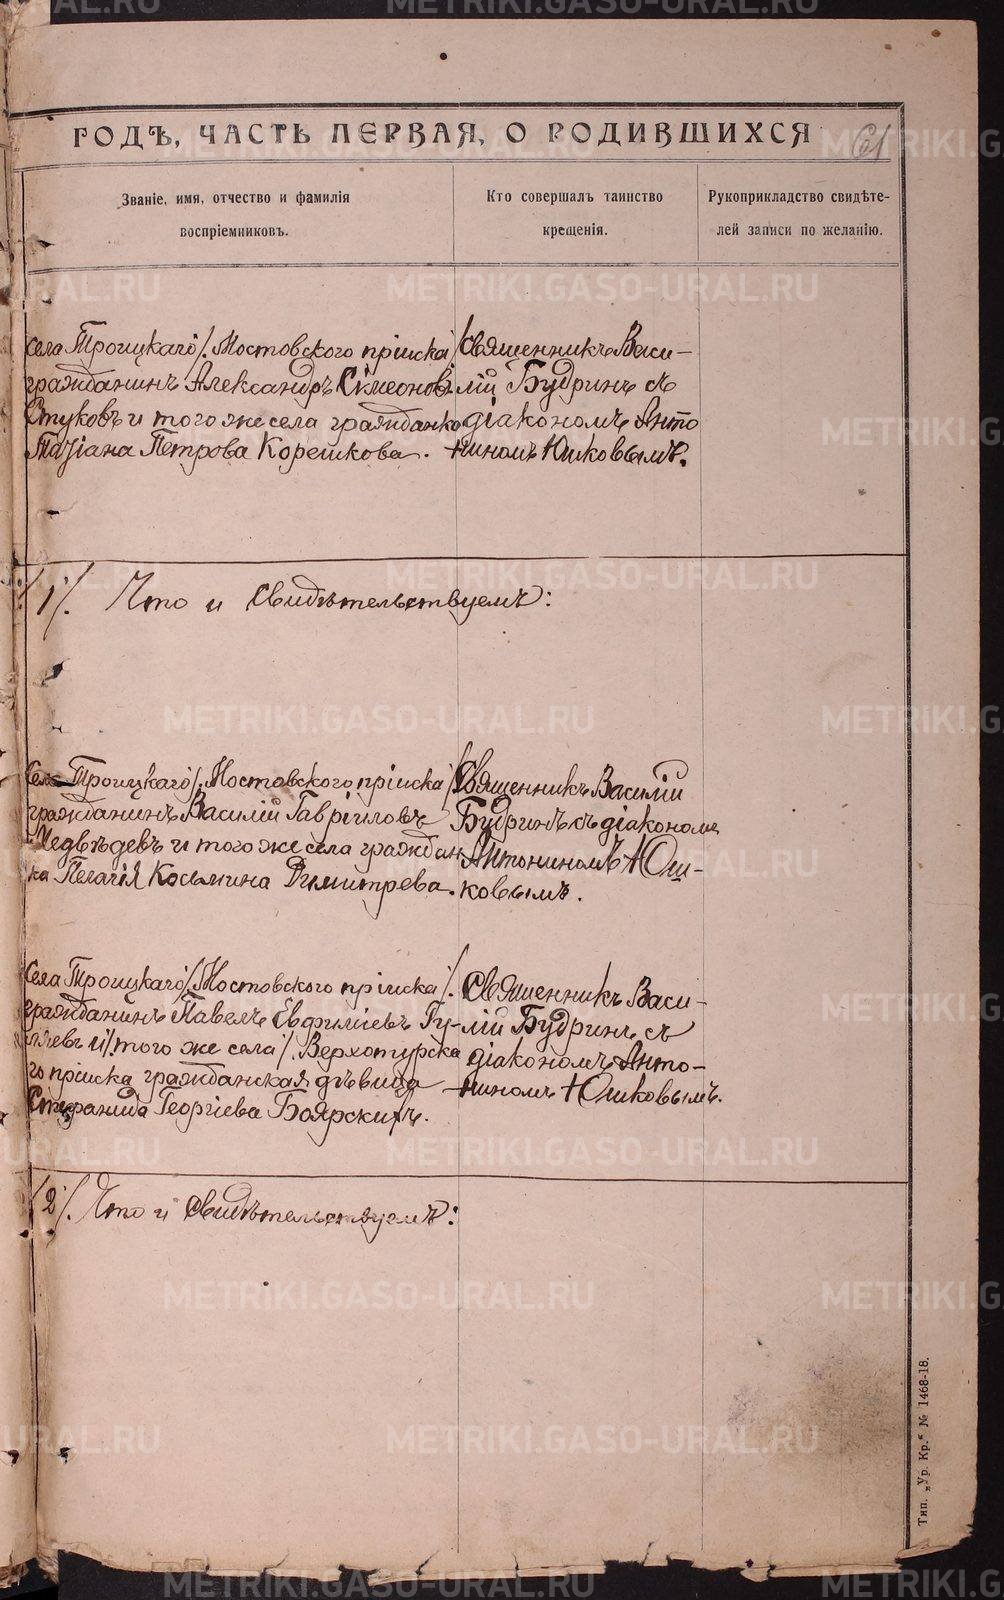 METRIKI.GASO-URAL.RU
ГОДЪ, ЧАСТЬ ПЕРВАЯ, О РОДИВШИХСЯ
61
Званіе, имя, отчество и фамилія
воспріемниковъ.
Кто совершалъ таинство
крещенія.
Рукоприкладство свидѣте-
лей записи по желанію.
Села Троицкаго /. Мостовского пріиска /.
гражданинъ Александръ Сімеонов.
Стуковъ и того же села гражданка
Татіана Петрова Корешкова.
Священникъ Васи-
лій Будринъ съ
діакономъ Анто
ниномъ Юшковымъ.
/1/. Что и свидѣтельствуемъ:
Села Троицкаго /. Мостовского пріиска /.
гражданинъ Василій Гавріиловъ
Медвѣдевъ и того же села граждан
ка Пелагія Косьмина Димитрева.
Священникъ Василій
Будринъ съ діакономъ
Антониномъ Юш-
ковымъ.
Села Троицкаго /. Мостовского пріиска /.
гражданинъ Павелъ Евфиміевъ Гу-
ляевъ и /. того же села /. Верхотурска
го пріиска гражданская дѣвица
Стефанида Георгіева Боярскихъ.
Священникъ Васи-
лій Будринъ съ
діакономъ Анто-
ниномъ Юшковымъ.
/2/. Что и свидѣтельствуемъ:
Тип. „Ур. Кр.“ № 1468-18.